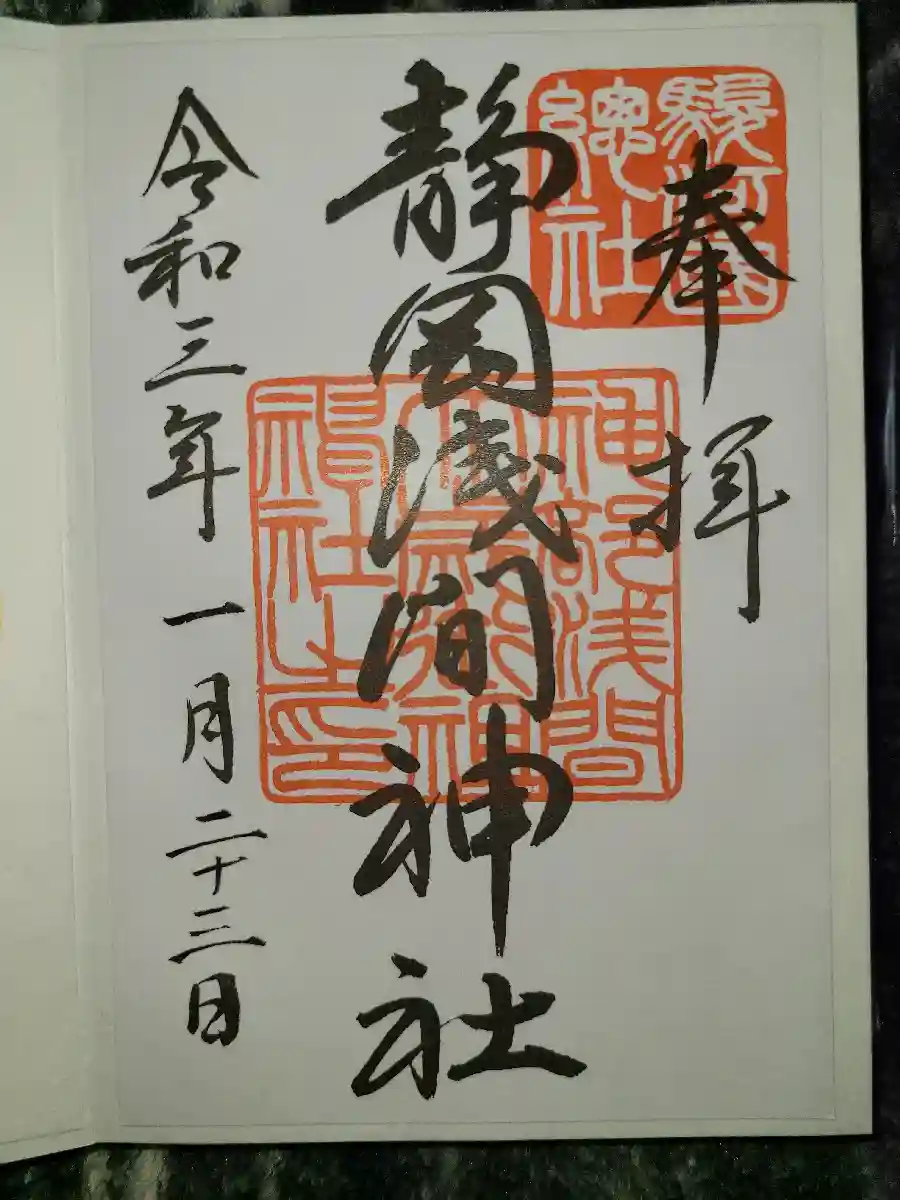 奉拝
駿河国
總社
静岡浅間神社
神部浅間
大歳御祖
神社之印
令和三年一月二十三日